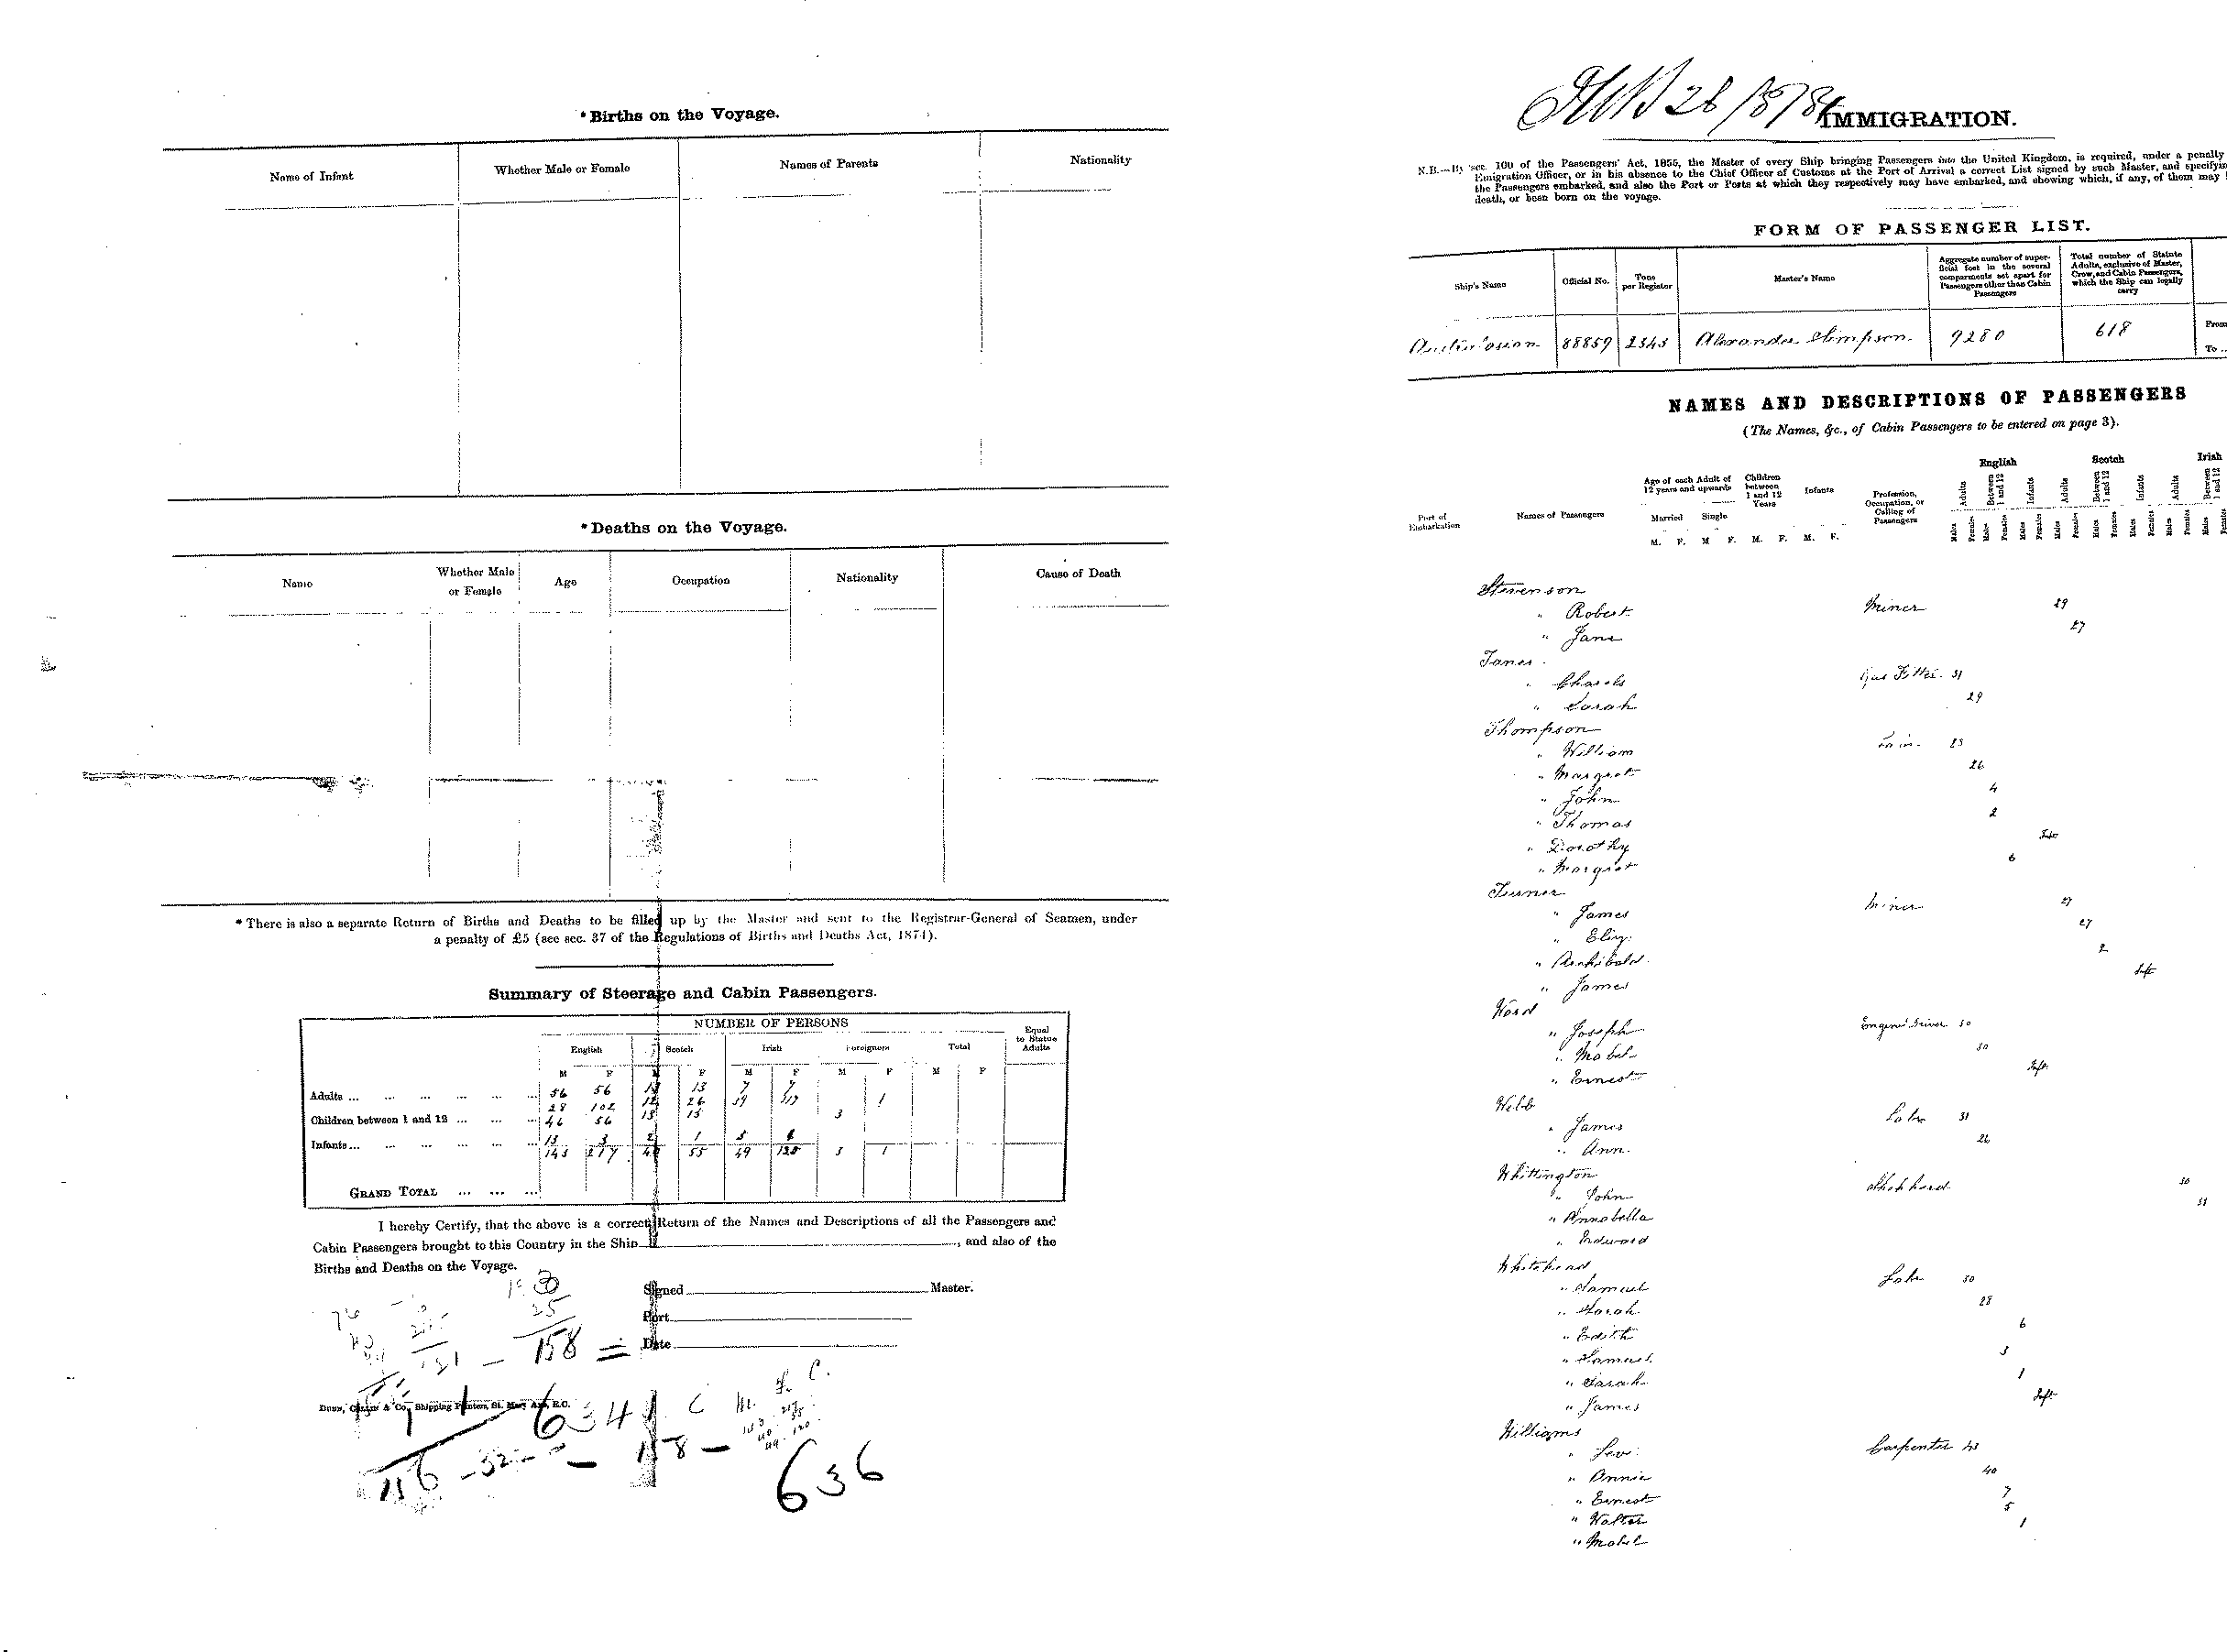 *Births on the Voyage.
Name of Infant
Whether Male or Female
Names of Parents
Nationality
*Deaths on the Voyage.
Name
Whether Male
or Female
Age
Occupation
Nationality
Cause of Death
* There is also a separate Return of Births and Deaths to be filled up by the Master and sent to the Registrar-General of Seamen, under
a penalty of £5 (see sec. 37 of the Regulations of Births and Deaths Act, 1874).
Summary of Steerage and Cabin Passengers.
NUMBER OF PERSONS
English Scotch Irish Foreigners Total
Equal
to Statue
Adults
M F M F M F M F M F
Adults ... ... ... ... ... ... 56 56 13 7 7
28 102 12 26 39 1
Children between 1 and 12 ... ... ... 46 56 13 15 3
Infants ... ... ... ... ... ... 13 3 2 1 5
143 217 55 49 3 1
GRAND TOTAL ... ... ...
I hereby Certify, that the above is a correct Return of the Names and Descriptions of all the Passengers and
Cabin Passengers brought to this Country in the Ship , and also of the
Births and Deaths on the Voyage.
Signed Master.
Port
Date
25
158 =
Shipping Printers, St. Mary Axe, E.C.
634
116 - 32 - 158 -
636
26
IMMIGRATION.
N.B.—By sec. 100 of the Passengers' Act, 1855, the Master of every Ship bringing Passengers into the United Kingdom, is required, under a penalty
Emigration Officer, or in his absence to the Chief Officer of Customs at the Port of Arrival a correct List signed by such Master, and specifyin
the Passengers embarked, and also the Port or Ports at which they respectively may have embarked, and showing which, if any, of them may
death, or been born on the voyage.
FORM OF PASSENGER LIST.
Ship's Name
Official No.
Tons
per Register
Master's Name
Aggregate number of super-
ficial feet in the several
compartments set apart for
Passengers other than Cabin
Passengers
Total number of Statute
Adults, exclusive of Master,
Crew, and Cabin Passengers,
which the Ship can legally
carry
88859 2343 Alexander Simpson. 9280 618
From
To ..
NAMES AND DESCRIPTIONS OF PASSENGERS
(The Names, &c., of Cabin Passengers to be entered on page 3).
Port of
Embarkation
Names of Passengers
Age of each Adult of
12 years and upwards
Married Single
Children
between
1 and 12
Years
Infants
M. F. M F. M. F. M. F.
Profession,
Occupation, or
Calling of
Passengers
English Scotch Irish
Adults Between 1 and 12 Infants Adults Between 1 and 12 Infants Adults Between 1 and 12
Males Females Males Females Males Females Males Females Males Females Males Females Males Females Males Females
Stevenson
" Robert Miner 29
" Jane 27
" Charles Gas Fitter. 31
" Sarah 29
Thompson
" William 23
" Margret 26
" John 4
" Thomas 2
" Dorothy Inft
" Margret 6
Turner
" James Miner 27
" Eliz. 27
" Archibald 2
" James Inft
Ward
" Joseph Engine Driver 30
" Mabel 30
" Ernest Inft
Webb
" James Labr 31
" Ann. 26
Whittington
" John Shephard 30
" Annabella 31
" Edward
Whitehead
" Samuel Labr 30
" Sarah 28
" Edith 6
" Samuel 3
" Sarah 1
" James Inft
Williams
" Levi Carpenter 43
" Annie 40
" Ernest 7
" Walter 5
" Mabel 1